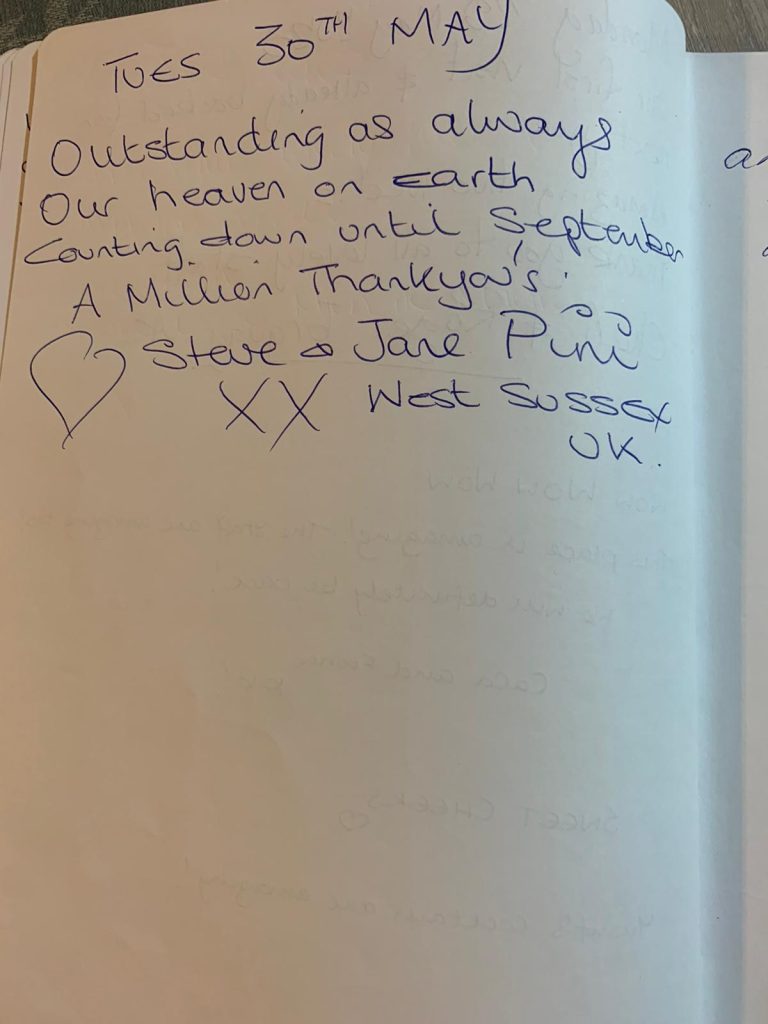 TUES 30TH MAY
Outstanding as always
Our heaven on Earth
Counting down until September
A Million Thankyou's
Steve & Jane Pini
XX West Sussex
UK.